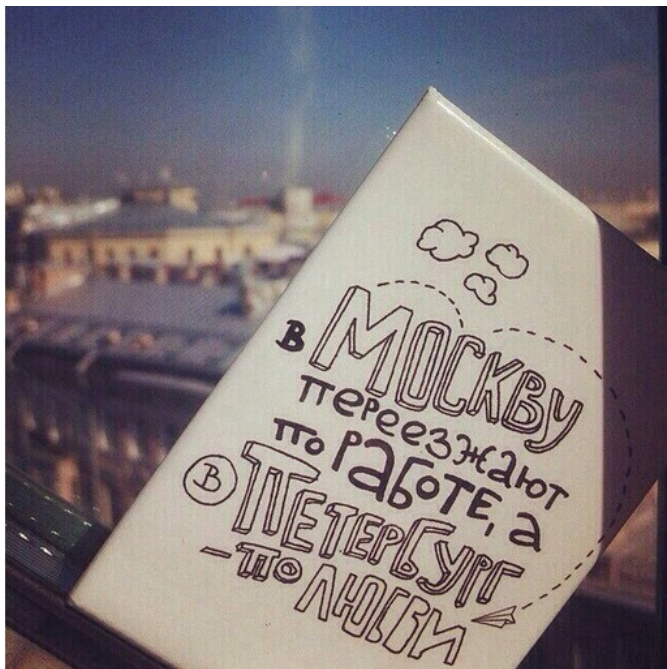 в МОСКВУ
переезжают
по РАБОТЕ, а
в ПЕТЕРБУРГ
- по ЛЮБВИ